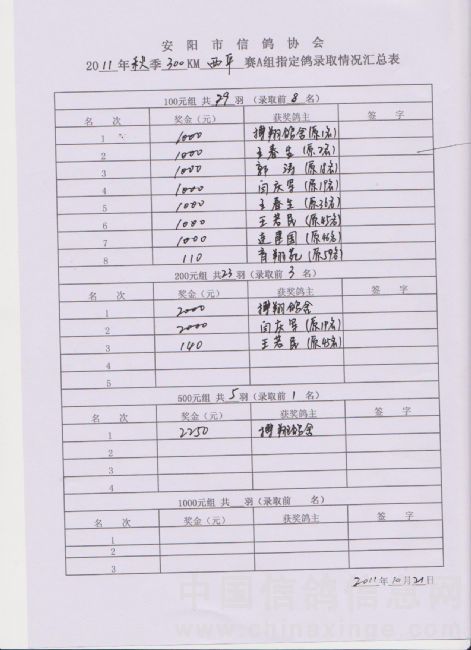 安阳市信鸽协会
2011年秋季300KM西平赛A组指定鸽录取情况汇总表
100元组 共29羽（录取前8名）
名 次 奖金（元） 获奖鸽主 签 字
1 1000 搏翔鸽舍(原1名)
2 1000 王春生(原2名)
3 1000 郭涛(原18名)
4 1000 闫庆军(原19名)
5 1000 王春生(原36名)
6 1000 王若民(原45名)
7 1000 连建国(原46名)
8 110 育翔苑(原59名)
200元组 共23羽（录取前3名）
名 次 奖金（元） 获奖鸽主 签 字
1 2000 搏翔鸽舍
2 2000 闫庆军(原19名)
3 140 王若民(原45名)
4
5
500元组 共5羽（录取前1名）
名 次 奖金（元） 获奖鸽主 签 字
1 2250 搏翔鸽舍
2
3
4
1000元组 共 羽（录取前 名）
名 次 奖金（元） 获奖鸽主 签 字
1
2
3
2011年10月21日
中国信鸽信息网
www.chinaxinge.com